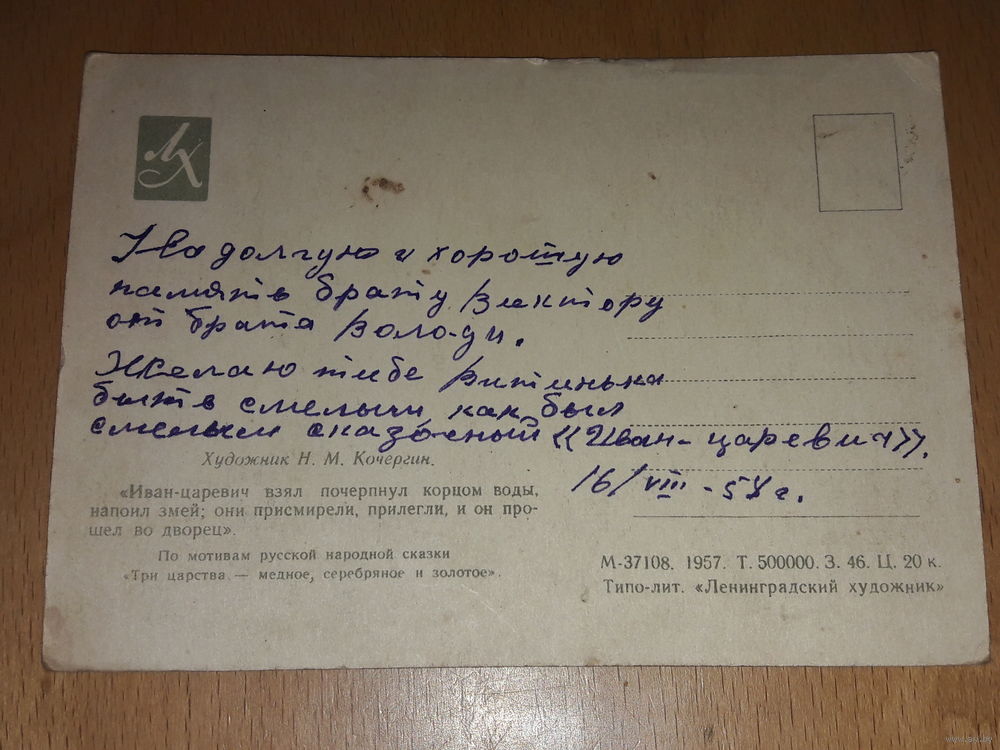 ЛХ
На долгую и хорошую
память брату Виктору
от брата Володи.
Желаю тибе Витинька
быть смелым как был
смелым сказочный «Иван-царевич».
16/VIII-58 г.
Художник Н. М. Кочергин.
«Иван-царевич взял почерпнул корцом воды,
напоил змей; они присмирели, прилегли, и он про-
шел во дворец».
По мотивам русской народной сказки
«Три царства — медное, серебряное и золотое».
М-37108. 1957. Т. 500000. З. 46. Ц. 20 к.
Типо-лит. «Ленинградский художник»